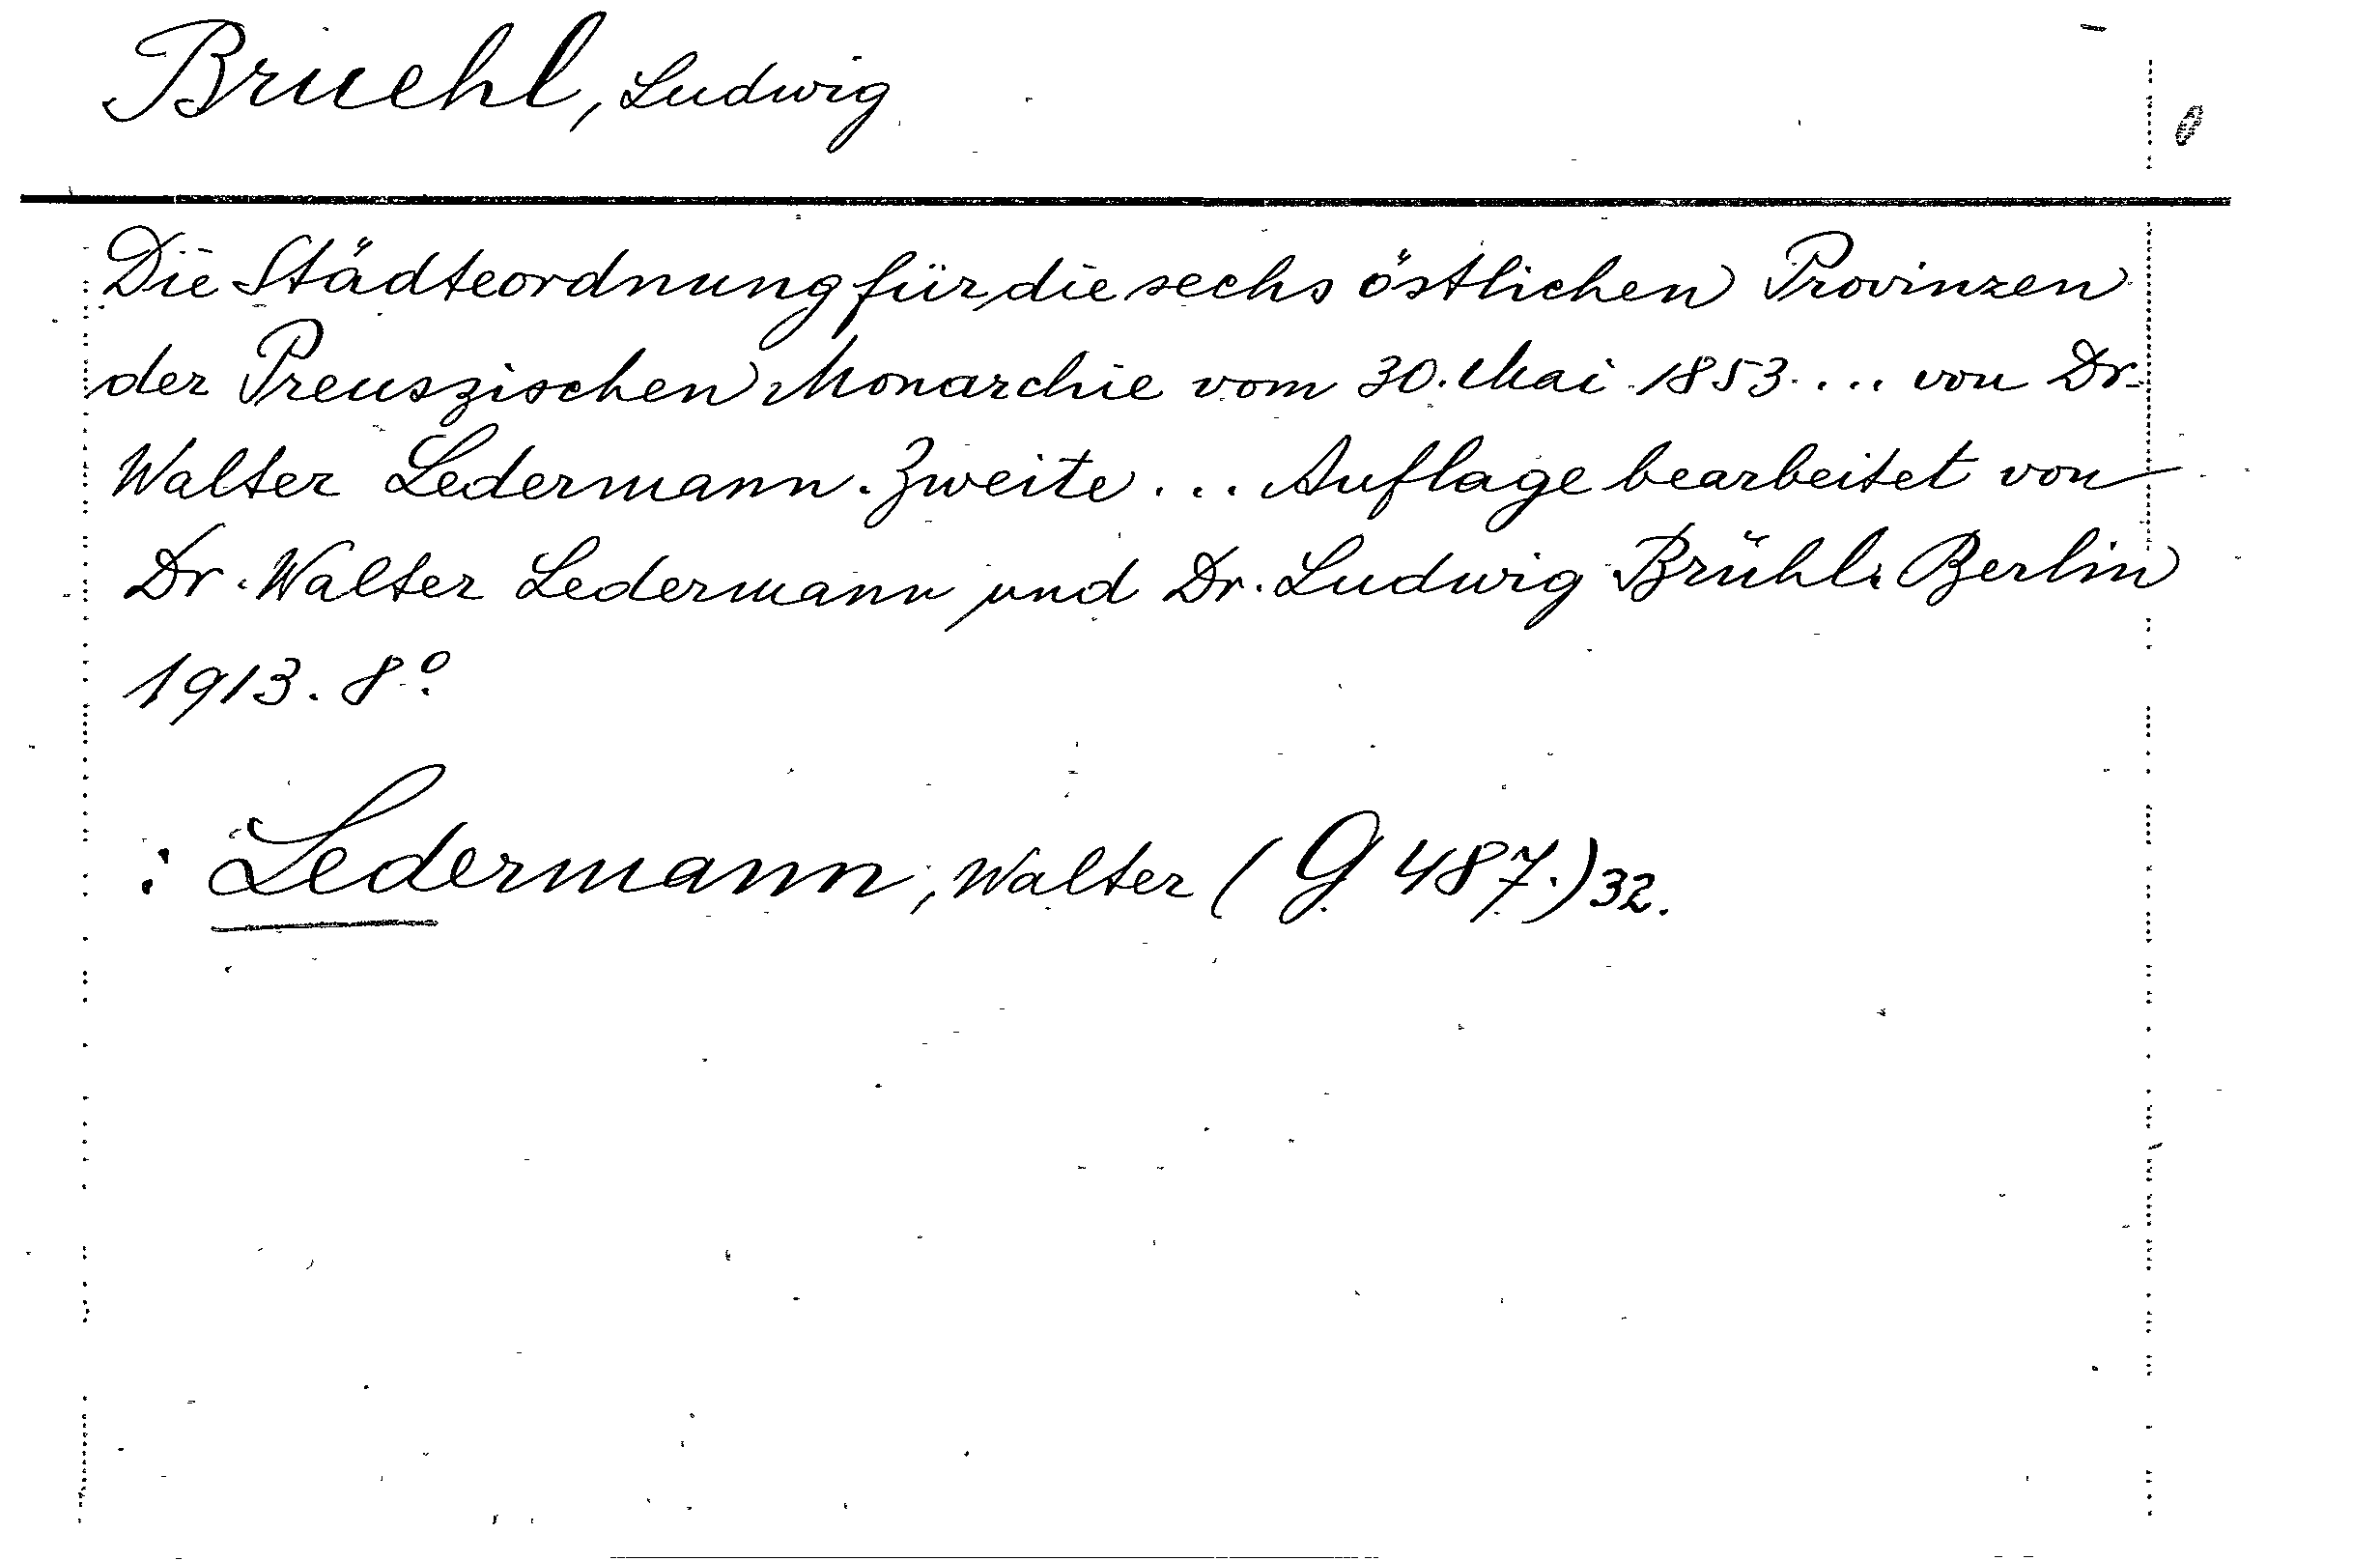 Bruehl, Ludwig
Die Städteordnung für die sechs östlichen Provinzen
der Preuszischen Monarchie vom 30. Mai 1853.... von Dr.
Walter Ledermann. Zweite ... Auflage bearbeitet von
Dr. Walter Ledermann und Dr. Ludwig Brühl. Berlin
1913. 8°.
: Ledermann, Walter (G 487.) 32.